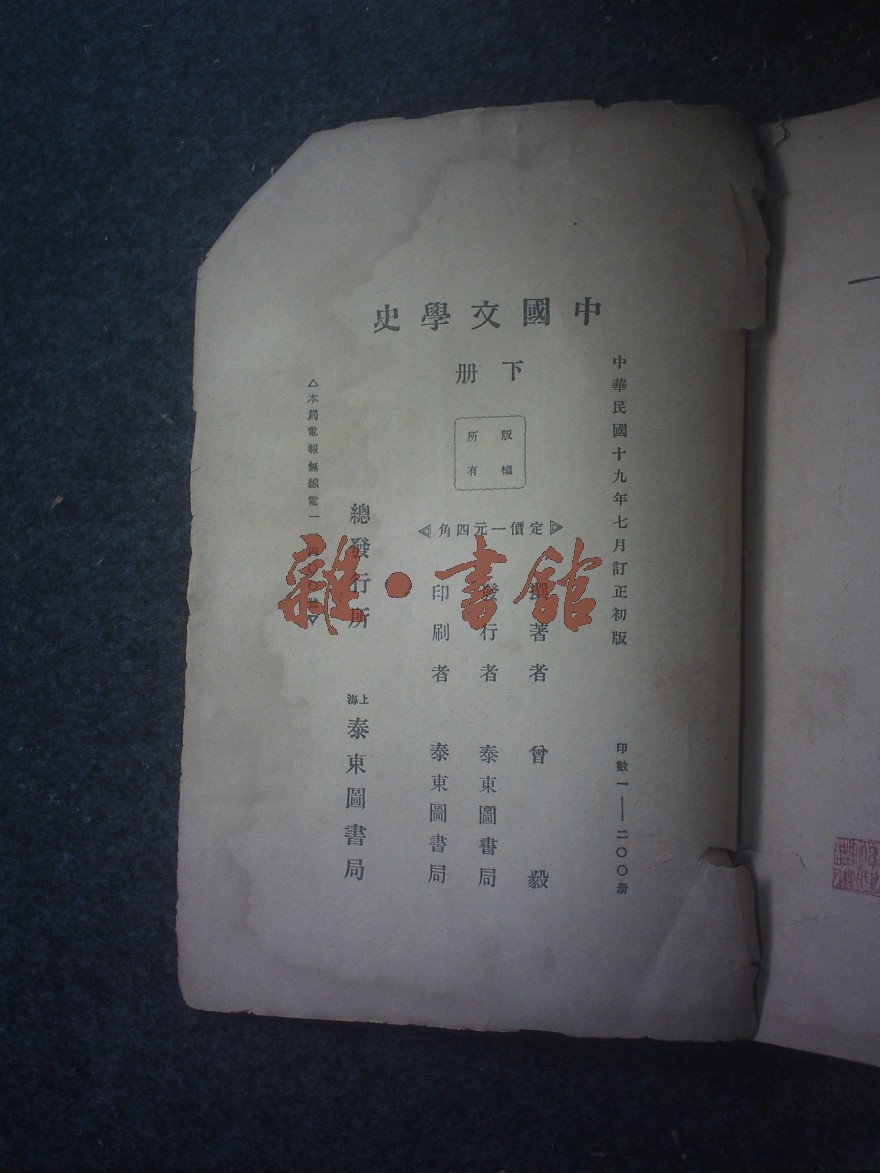 中國文學史
下册
中華民國十九年七月訂正初版
印數一——二〇〇册
版權所有
▷定價一元四角◁
撰著者 曾毅
發行者 泰東圖書局
印刷者 泰東圖書局
總發行所 上海 泰東圖書局
△本局電報無線電一四〇〇
雜·書館